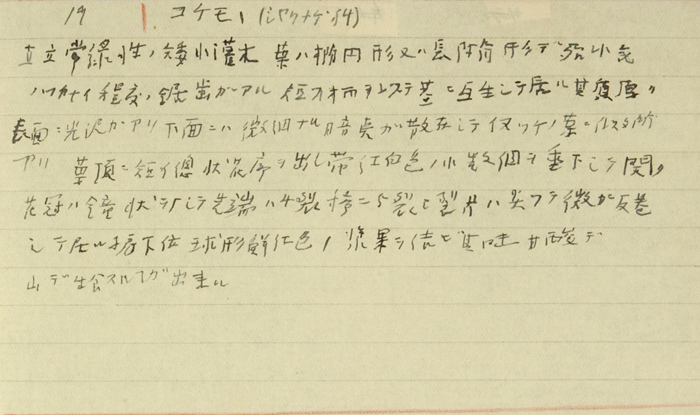 19 コケモヽ (シヤクナゲ科)
直立常緑性ノ矮小灌木 葉ハ楕円形又ハ長 形デ 小気
ノツカナイ程度ノ鋸歯ガアル 短 柄ヲ以ステ茎ニ互生シテ居ル其質厚ク
表面ニ光沢ガアリ下面ニハ微細ナル暗点ガ散在シテ イワツゲノ葉ニ似タ所
アリ 葉頂ニ短イ總状花序ヲ出シ帯紅白色ノ小数個ヲ垂下シテ開ク
花冠ハ鐘状ヲナシテ先端ハ4裂稀ニ5裂シ裂片ハ尖ツテ微カニ反巻
シテ居ル 下位 球形鮮紅色ノ漿果ヲ結ビ其味甘酸デ
山デ生食スルコトガ出来ル